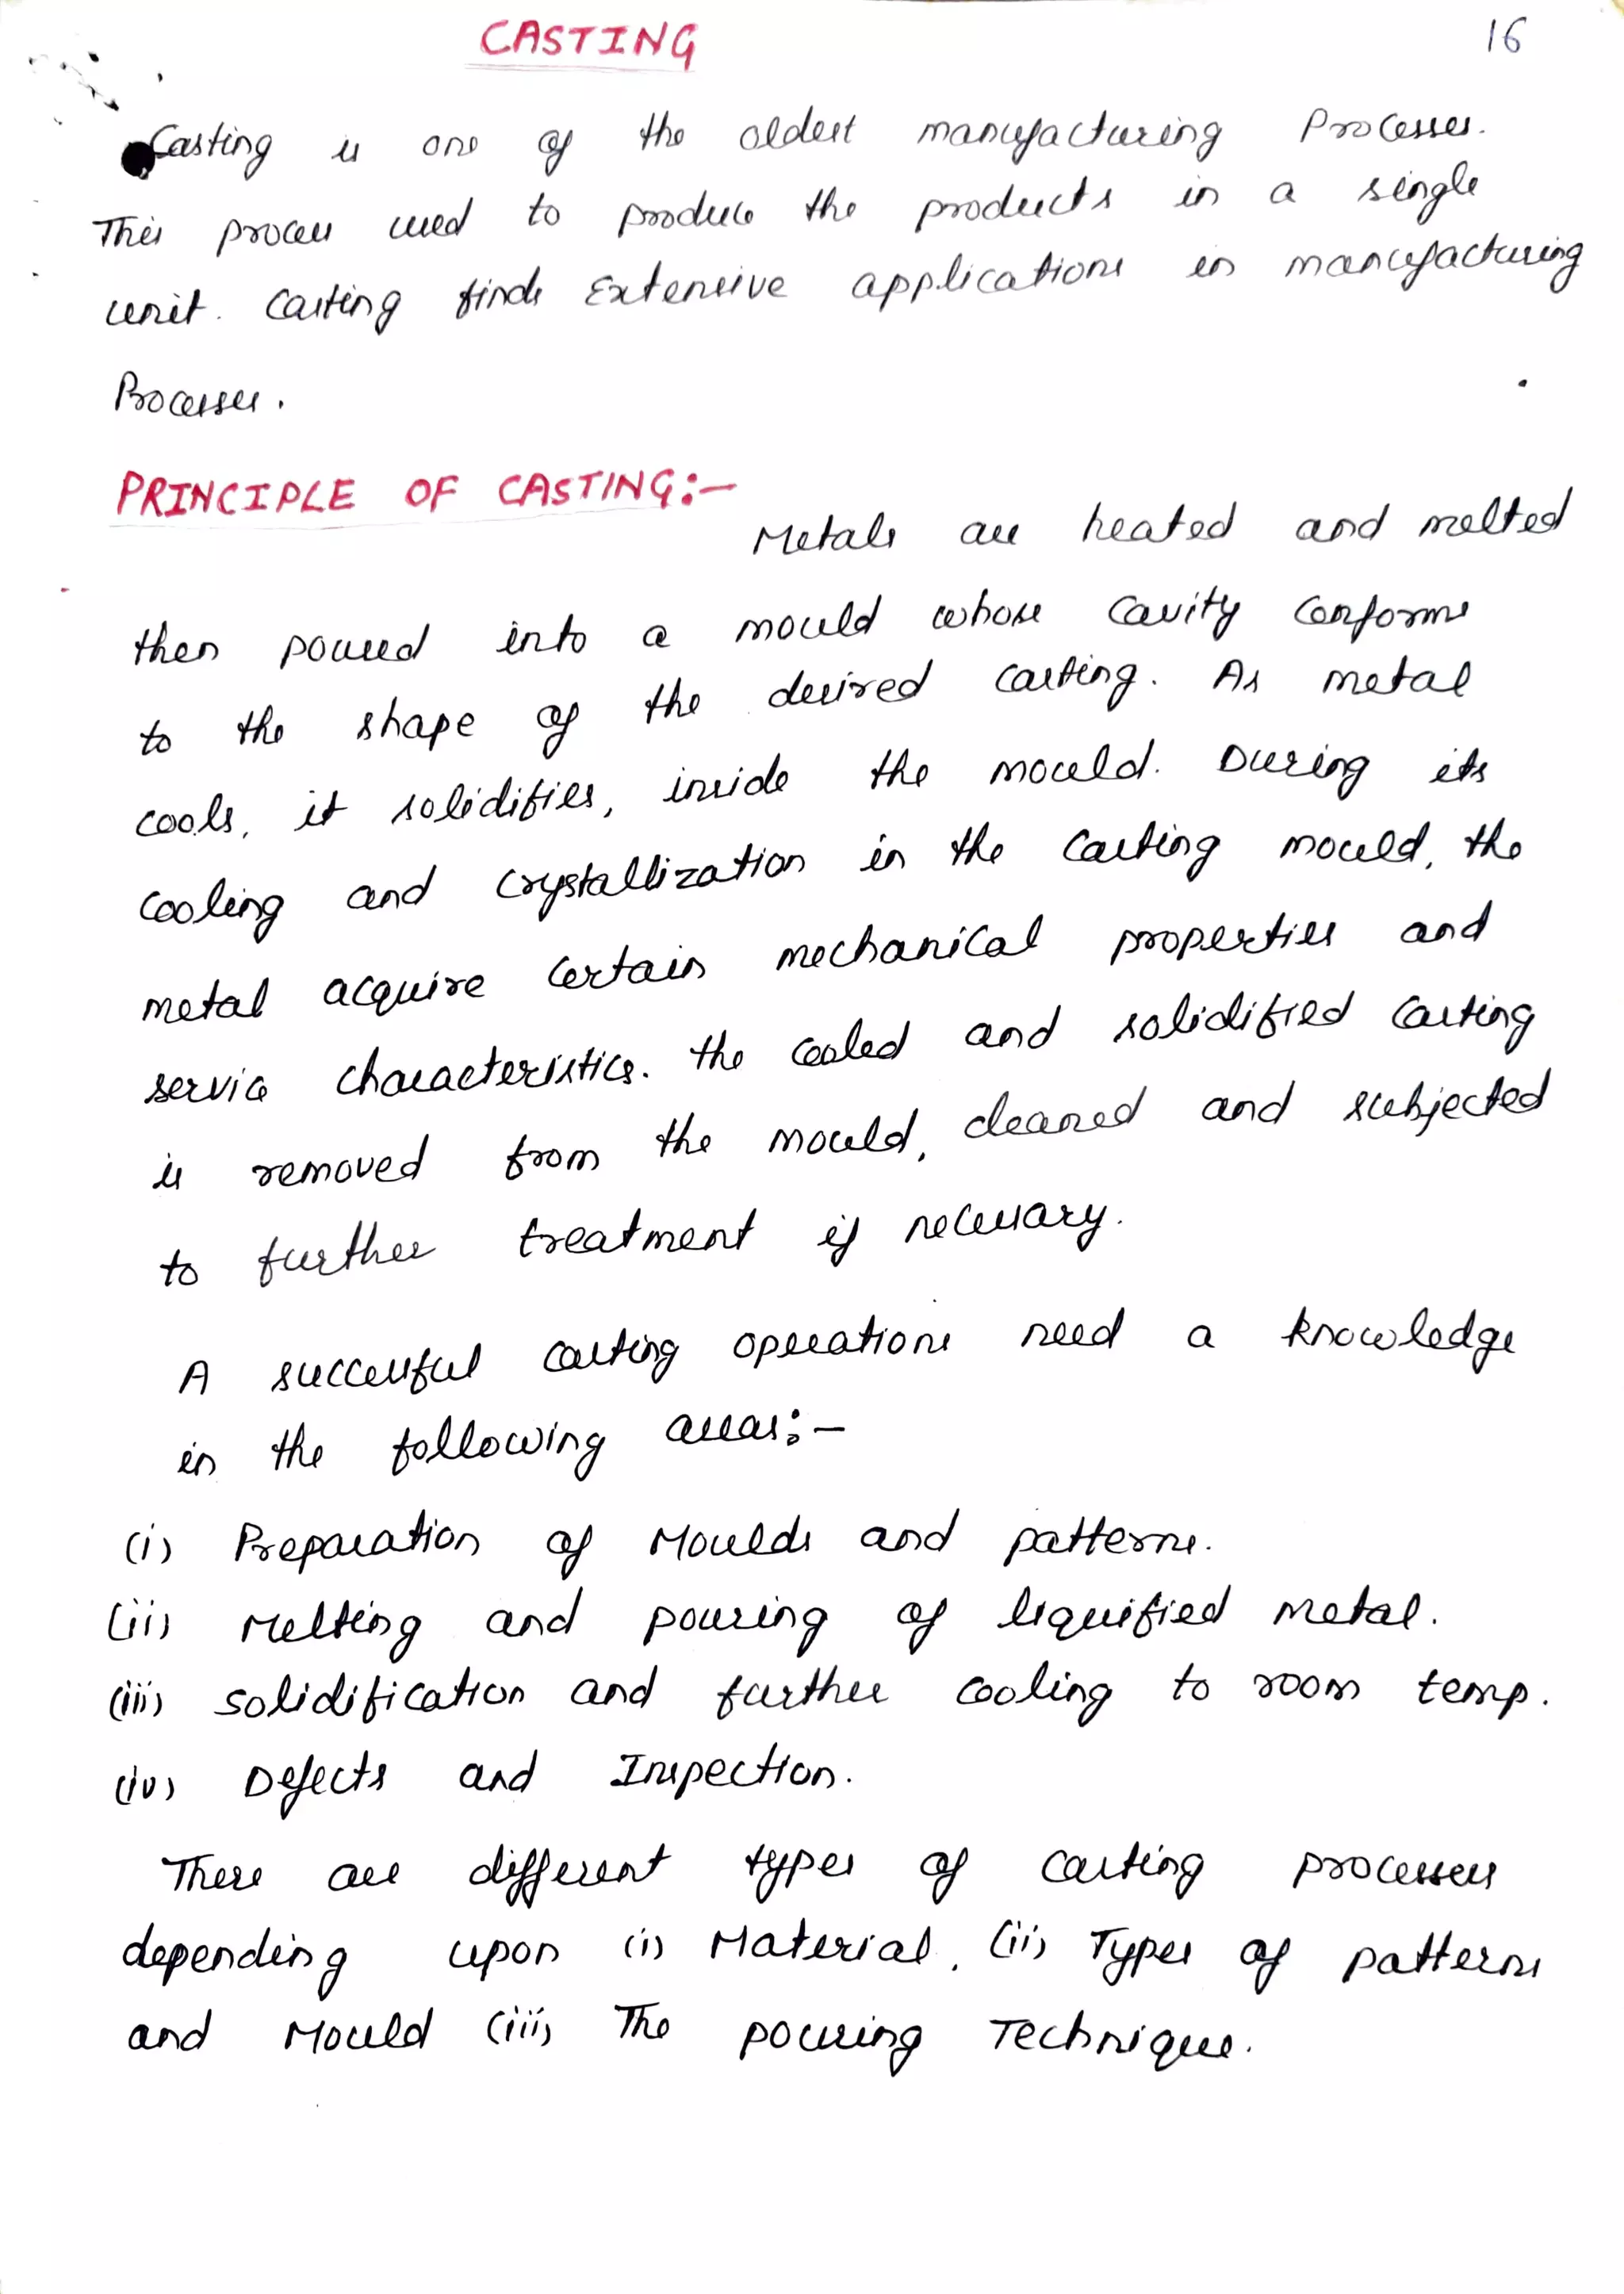 CASTING
16
Casting is one of the oldest manufacturing Processes.
This process used to produce the products in a single
unit. Casting finds Extensive applications in manufacturing
Processes.
PRINCIPLE OF CASTING:-
Metals are heated and melted
then poured into a mould whose Cavity Conforms
to the shape of the desired casting. As metal
cools, it solidifies, inside the mould. During its
cooling and crystallization in the Casting mould, the
metal acquire Certain mechanical properties and
service characteristics. The cooled and solidified Casting
is removed from the mould, cleaned and subjected
to further treatment if necessary.
A successful casting operations need a knowledge
in the following areas:-
(i) Preparation of Moulds and patterns.
(ii) Melting and pouring of liquified metal.
(iii) solidification and further cooling to room temp.
(iv) Defects and Inspection.
There are different types of casting processes
depending upon (i) Material, (ii) Types of patterns
and Mould (iii) The pouring Technique.